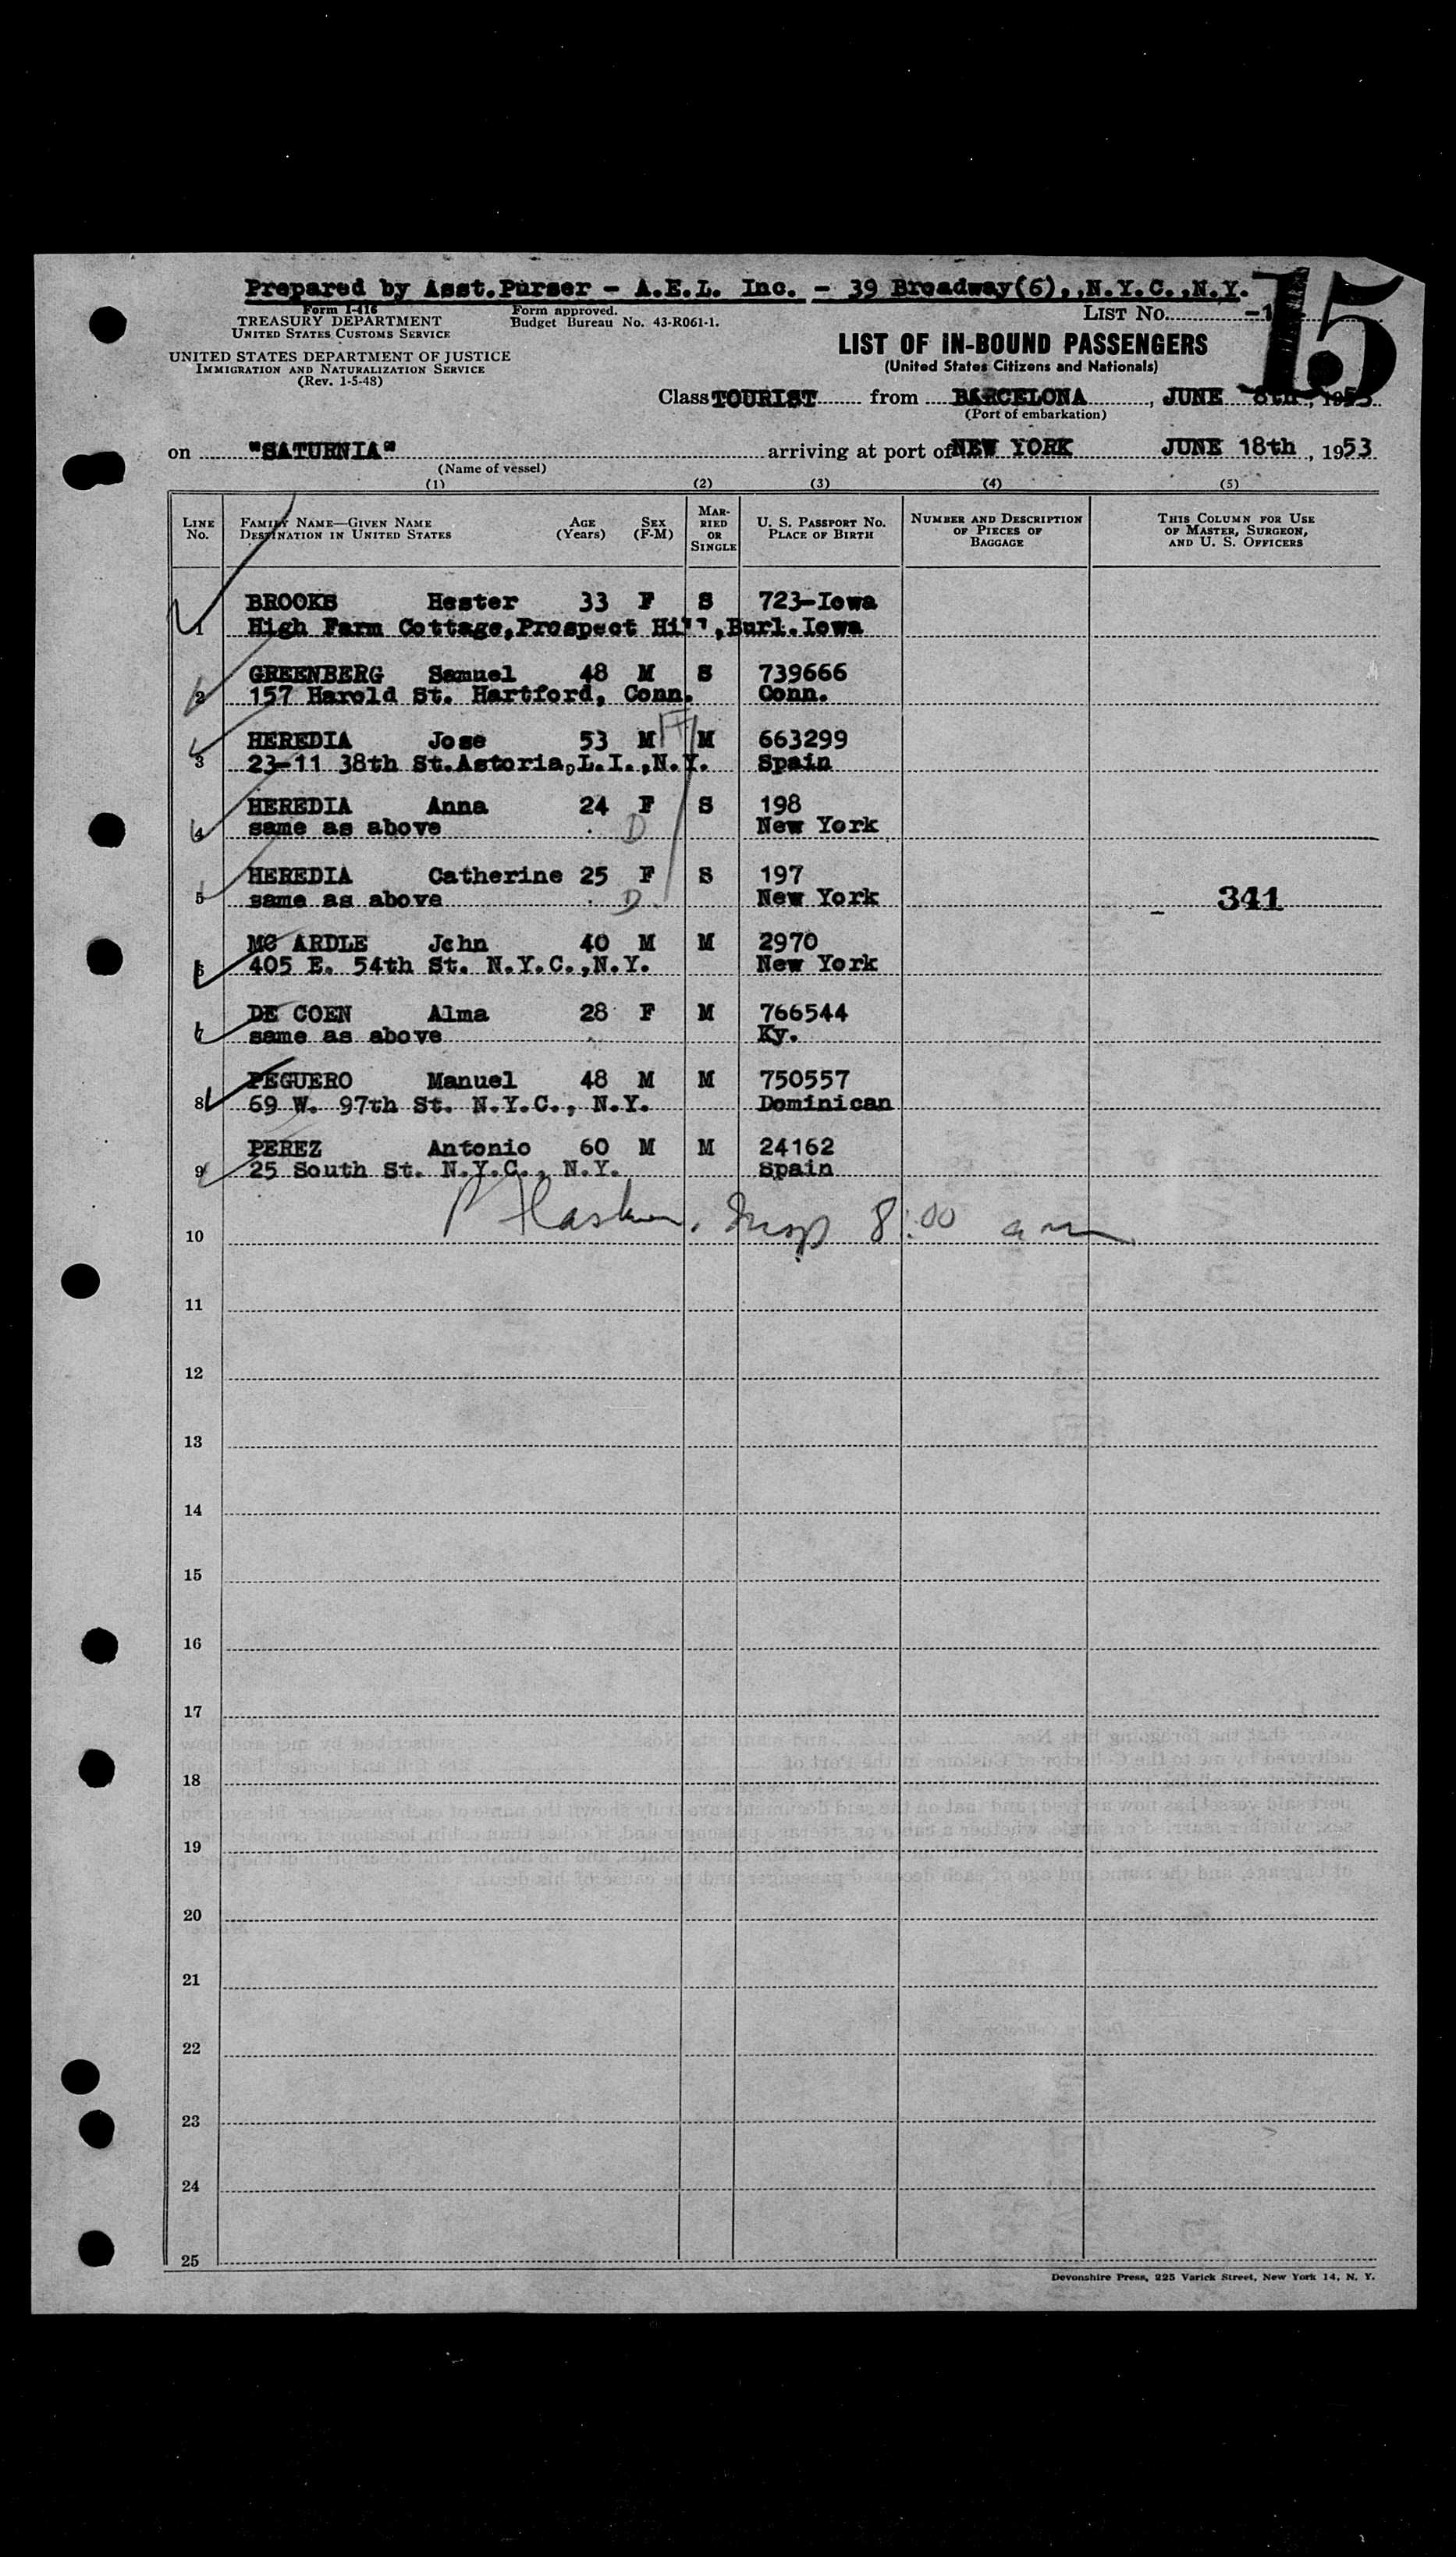 Prepared by Asst.Purser - A.E.L. Inc. - 39 Broadway(6),,N.Y.C.,N.Y.
Form I-416
TREASURY DEPARTMENT
UNITED STATES CUSTOMS SERVICE
Form approved.
Budget Bureau No. 43-R061-1.
LIST NO. -1
15
UNITED STATES DEPARTMENT OF JUSTICE
IMMIGRATION AND NATURALIZATION SERVICE
(Rev. 1-5-48)
LIST OF IN-BOUND PASSENGERS
(United States Citizens and Nationals)
Class TOURIST from BARCELONA, JUNE 8th, 1953
(Port of embarkation)
on "SATURNIA" arriving at port of NEW YORK JUNE 18th, 1953
(Name of vessel)
(1) (2) (3) (4) (5)
LINE NO. FAMILY NAME—GIVEN NAME DESTINATION IN UNITED STATES AGE (Years) SEX (F-M) MARRIED OR SINGLE U. S. PASSPORT NO. PLACE OF BIRTH NUMBER AND DESCRIPTION OF PIECES OF BAGGAGE THIS COLUMN FOR USE OF MASTER, SURGEON, AND U. S. OFFICERS
BROOKS Hester 33 F S 723-Iowa
1 High Farm Cottage,Prospect Hi'',Burl.Iowa
GREENBERG Samuel 48 M S 739666
2 157 Harold St. Hartford, Conn. Conn.
HEREDIA Jose 53 M M 663299
3 23-11 38th St.Astoria,L.I.,N.Y. Spain
HEREDIA Anna 24 F S 198
4 same as above D New York
HEREDIA Catherine 25 F S 197
5 same as above D New York 341
MC ARDLE John 40 M M 2970
6 405 E. 54th St. N.Y.C.,N.Y. New York
DE COEN Alma 28 F M 766544
7 same as above Ky.
PEGUERO Manuel 48 M M 750557
8 69 W. 97th St. N.Y.C., N.Y. Dominican
PEREZ Antonio 60 M M 24162
9 25 South St. N.Y.C., N.Y. Spain
Insp 8:00 am
10
11
12
13
14
15
16
17
18
19
20
21
22
23
24
25
Devonshire Press, 225 Varick Street, New York 14, N. Y.